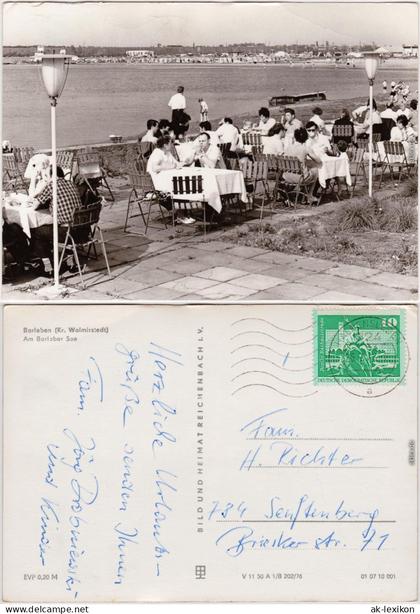 Barleben (Kr. Wolmirstedt)
Am Barleber See
Herzliche Urlaubs-
grüße senden Ihnen
Fam. Jörg
und Kinder
EVP 0,20 M
BILD UND HEIMAT REICHENBACH i. V.
10
DEUTSCHE DEMOKRATISCHE REPUBLIK
Fam.
H. Richter
784 Senftenberg
Briesker str. 71
V 11 50 A 1/B 202/76
01 07 10 001
www.ak-lexikon.de
© ak-lexikon